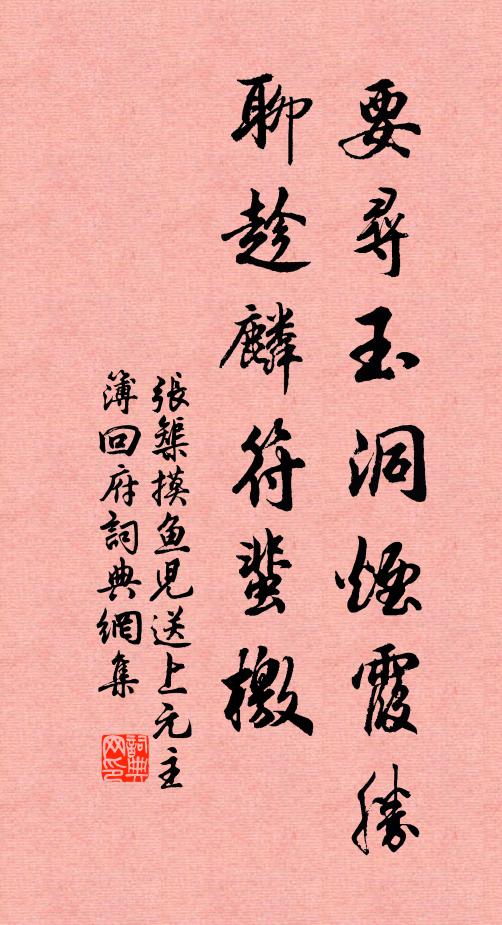 要尋玉洞煙霞勝
聊趁麟符蜚檄
張榘摸魚兒送上元主
簿回府詞典網集
詞典
网印